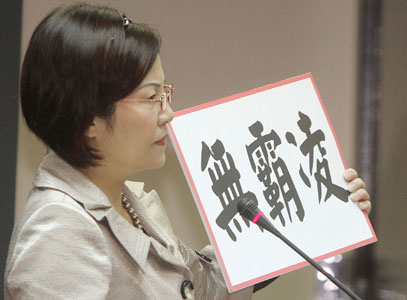 無霸凌